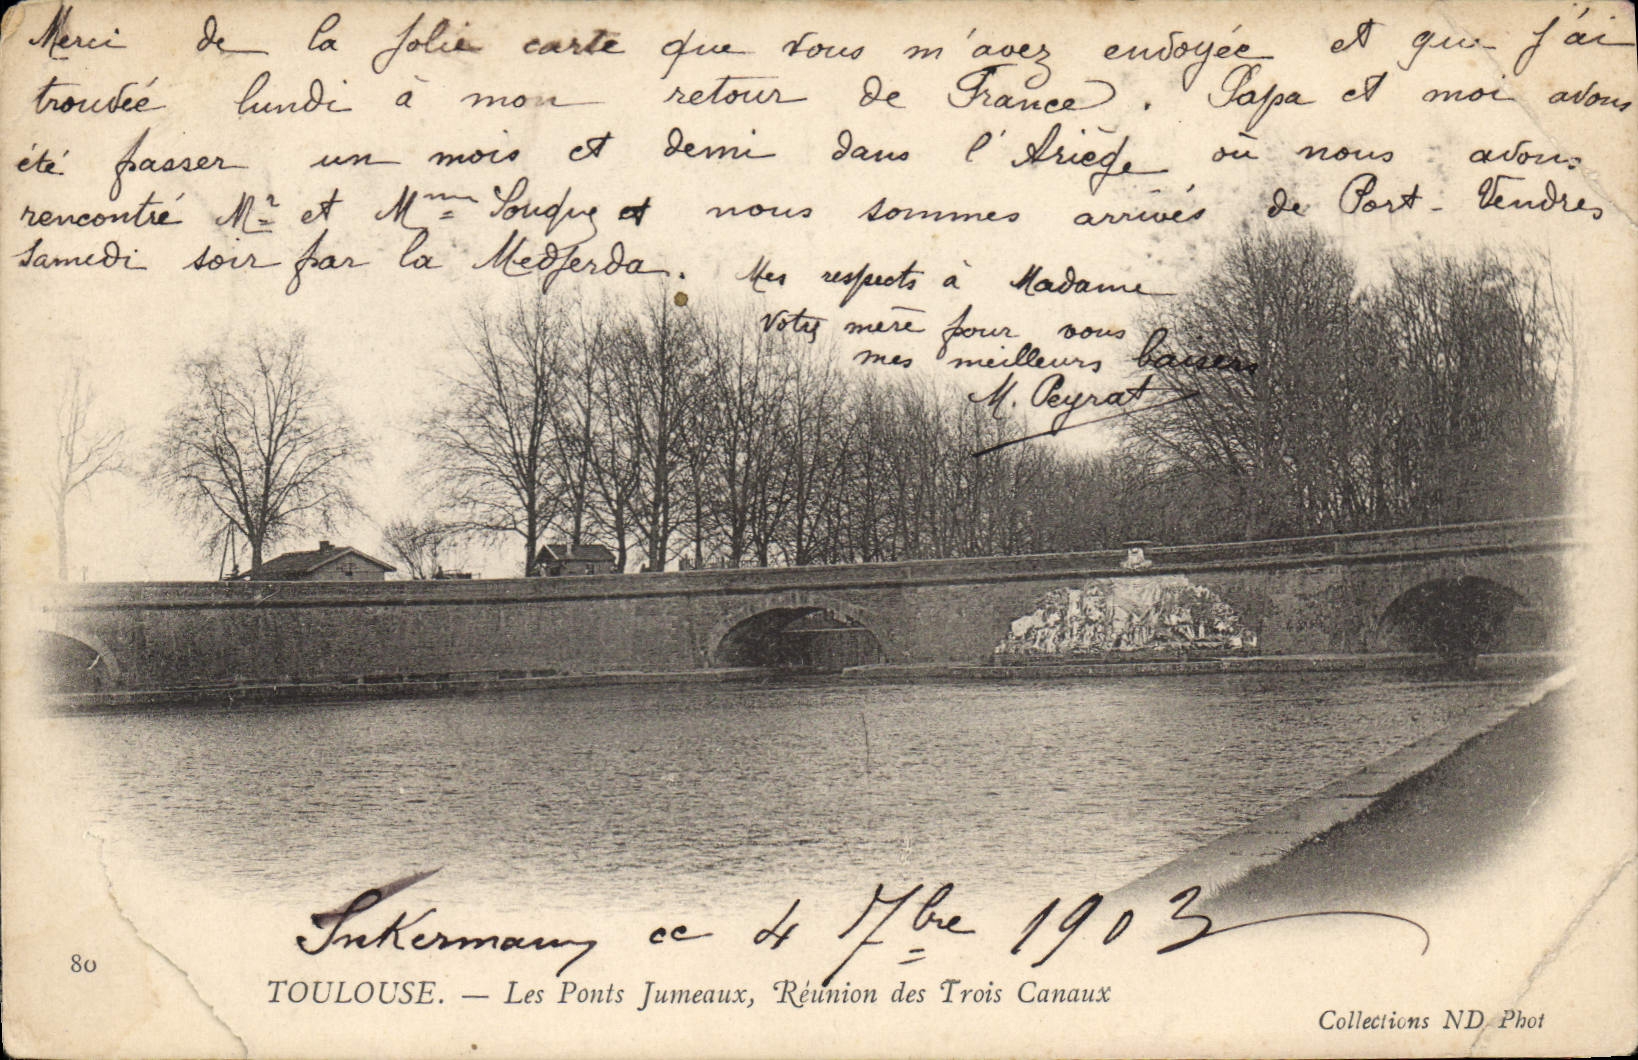 Merci de la jolie carte que vous m'avez envoyée et que j'ai
trouvée lundi à mon retour de France. Papa et moi avons
été passer un mois et demi dans l'Ariège où nous avons
rencontré Mr et Mme et nous sommes arrivés de Port-Vendres
samedi soir par la Medjerda. Mes respects à Madame
votre mère pour vous
mes meilleurs baisers
M. Peyrat
Inkermann ce 4 7bre 1903
80
TOULOUSE. — Les Ponts Jumeaux, Réunion des Trois Canaux
Collections ND Phot